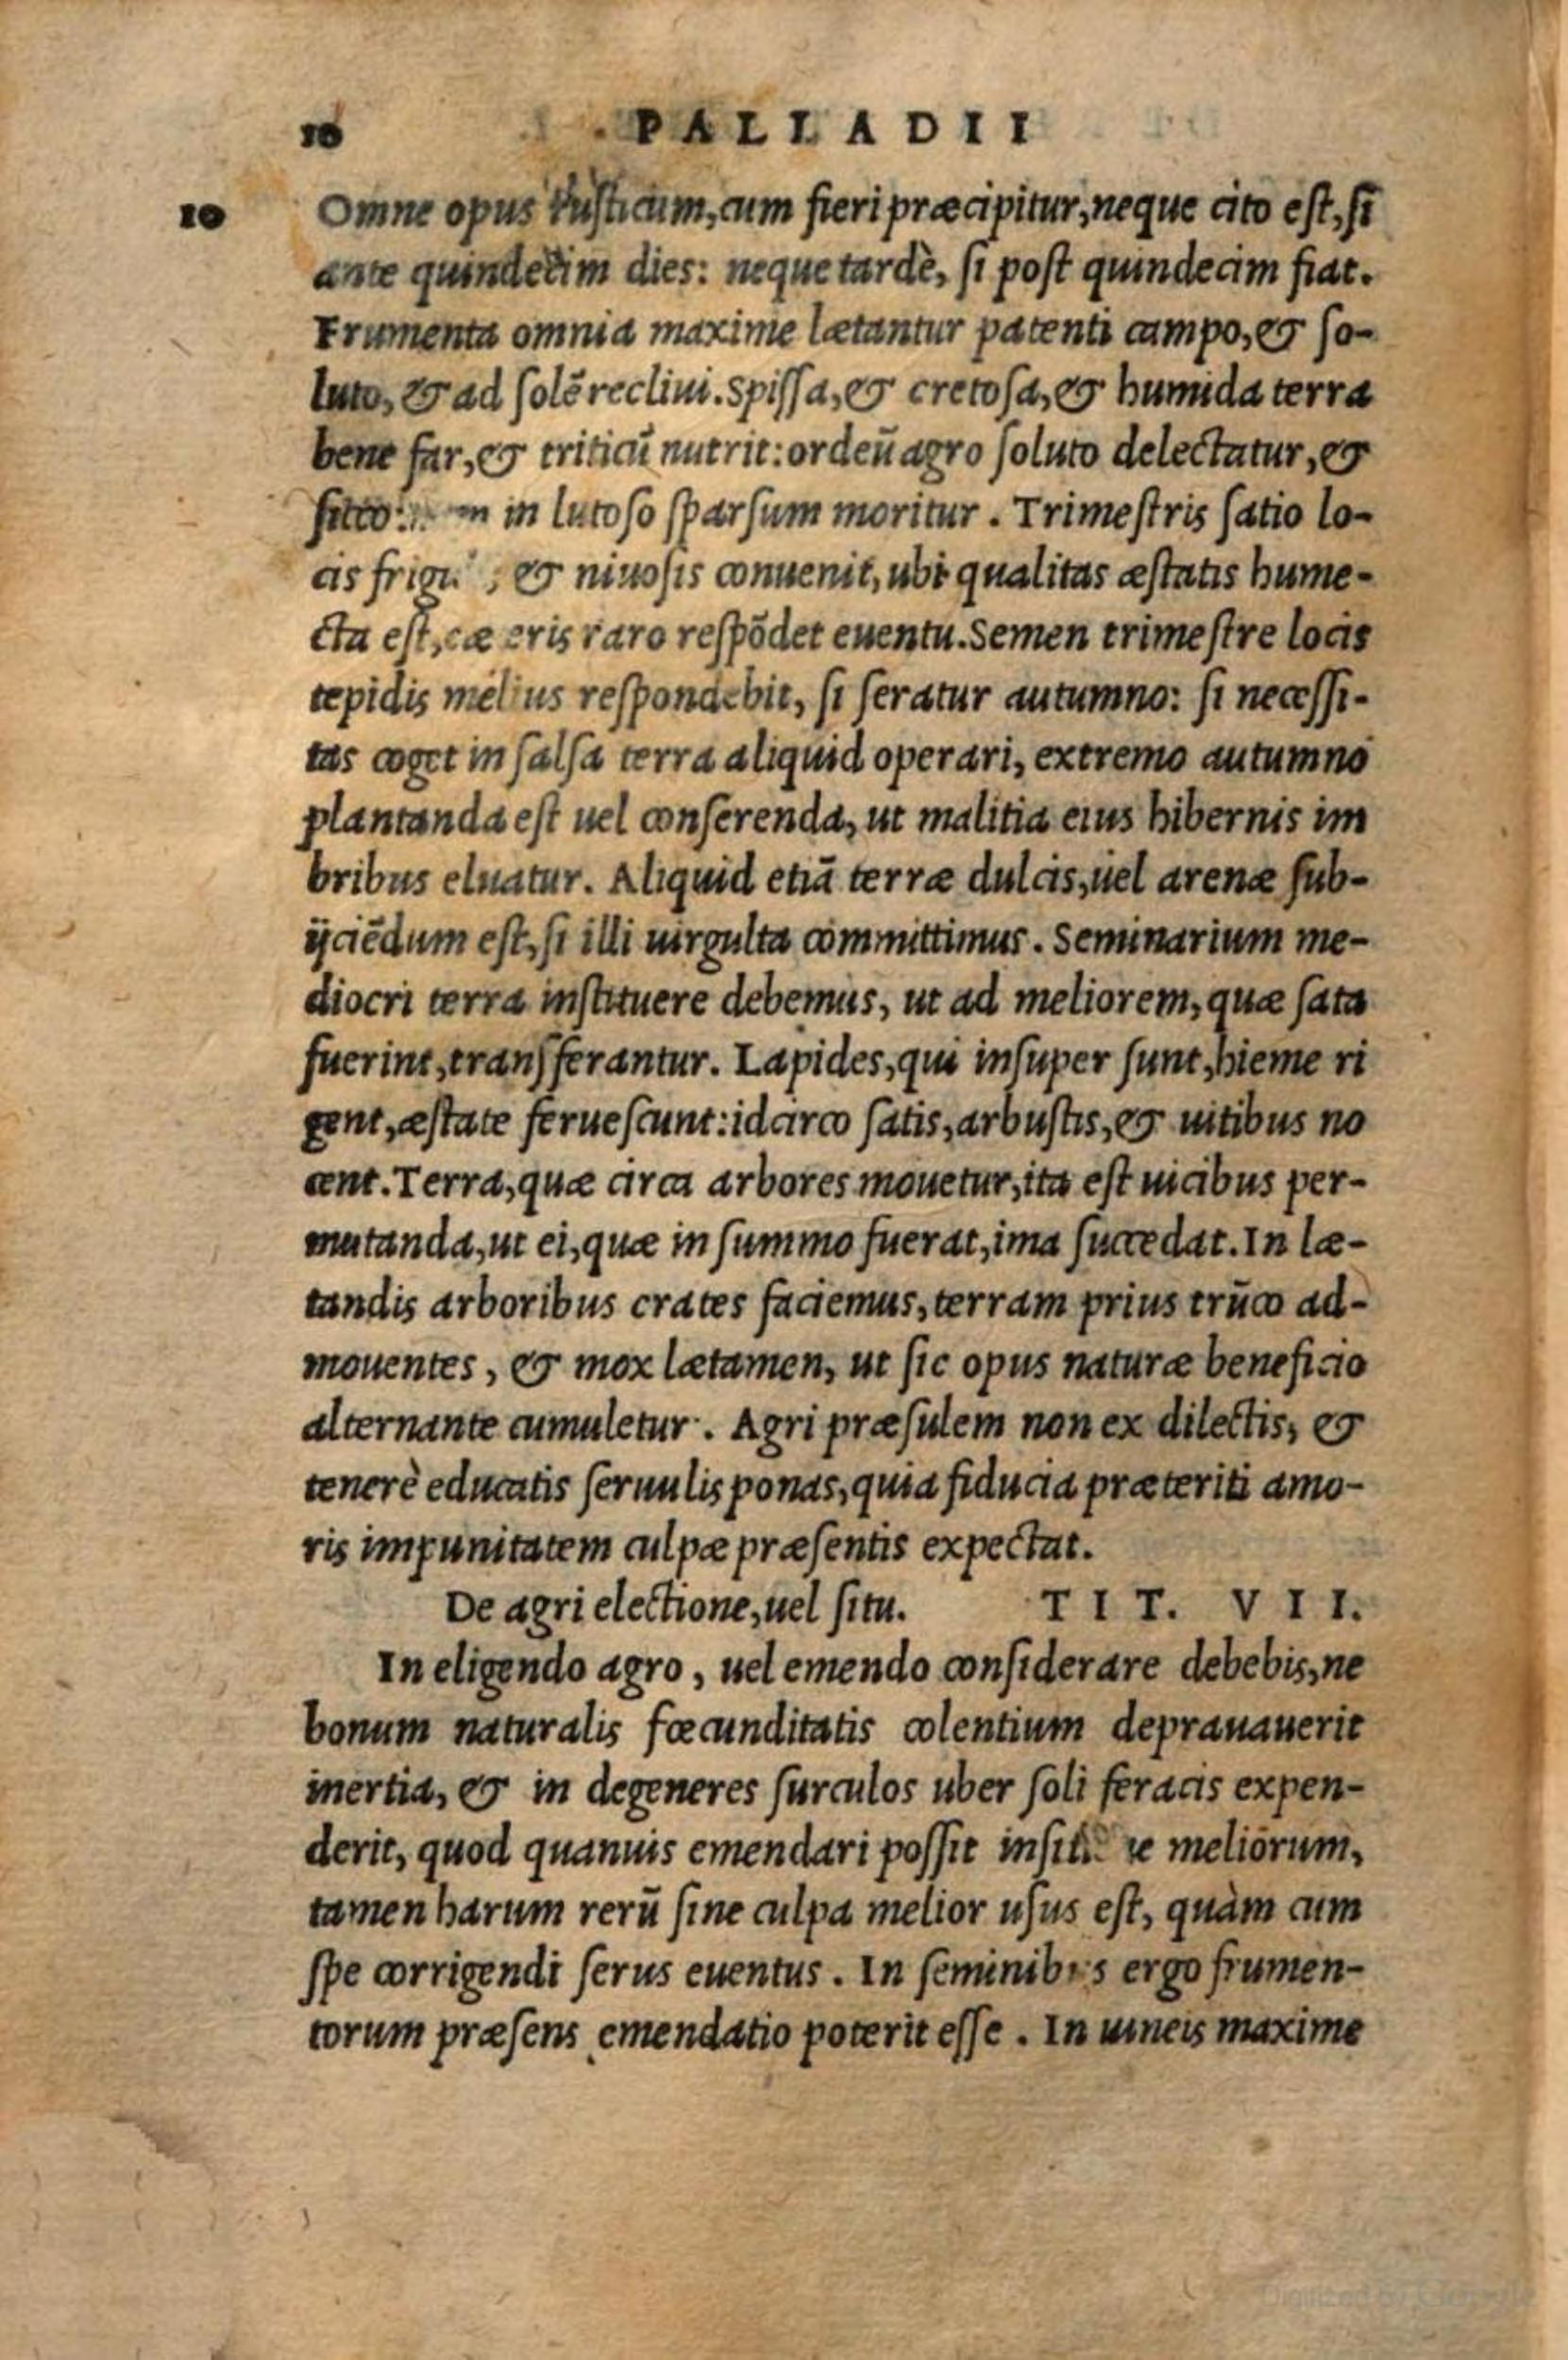 10 PALLADII
10 Omne opus rusticum, cum fieri præcipitur, neque cito est, si
ante quindecim dies: neque tardè, si post quindecim fiat.
Frumenta omnia maxime lætantur patenti campo, & so-
luto, & ad solē reclivi. Spissa, & cretosa, & humida terra
bene far, & triticū nutrit: ordeū agro soluto delectatur, &
sicco: in lutoso sparsum moritur. Trimestris satio lo-
cis & niuosis conuenit, ubi qualitas æstatis hume-
cta est, cæteris raro respōdet euentu. Semen trimestre locis
tepidis melius respondebit, si seratur autumno: si necessi-
tas coget in salsa terra aliquid operari, extremo autumno
plantanda est uel conserenda, ut malitia eius hibernis im
bribus eluatur. Aliquid etiā terræ dulcis, uel arenæ sub-
ijciēdum est, si illi uirgulta committimus. Seminarium me-
diocri terra instituere debemus, ut ad meliorem, quæ sata
fuerint, transferantur. Lapides, qui insuper sunt, hieme ri
gent, æstate feruescunt: idcirco satis, arbustis, & uitibus no
cent. Terra, quæ circa arbores mouetur, ita est uicibus per-
mutanda, ut ei, quæ in summo fuerat, ima succedat. In læ-
tandis arboribus crates faciemus, terram prius trūco ad-
mouentes, & mox lætamen, ut sic opus naturæ beneficio
alternante cumuletur. Agri præsulem non ex dilectis, &
tenerè educatis seruulis ponas, quia fiducia præteriti amo-
ris impunitatem culpæ præsentis expectat.
De agri electione, uel situ. TIT. VII.
In eligendo agro, uel emendo considerare debebis, ne
bonum naturalis fœcunditatis colentium deprauauerit
inertia, & in degeneres surculos uber soli feracis expen-
derit, quod quanuis emendari possit meliorum,
tamen harum rerū sine culpa melior usus est, quàm cum
spe corrigendi serus euentus. In seminibus ergo frumen-
torum præsens emendatio poterit esse. In uineis maxime